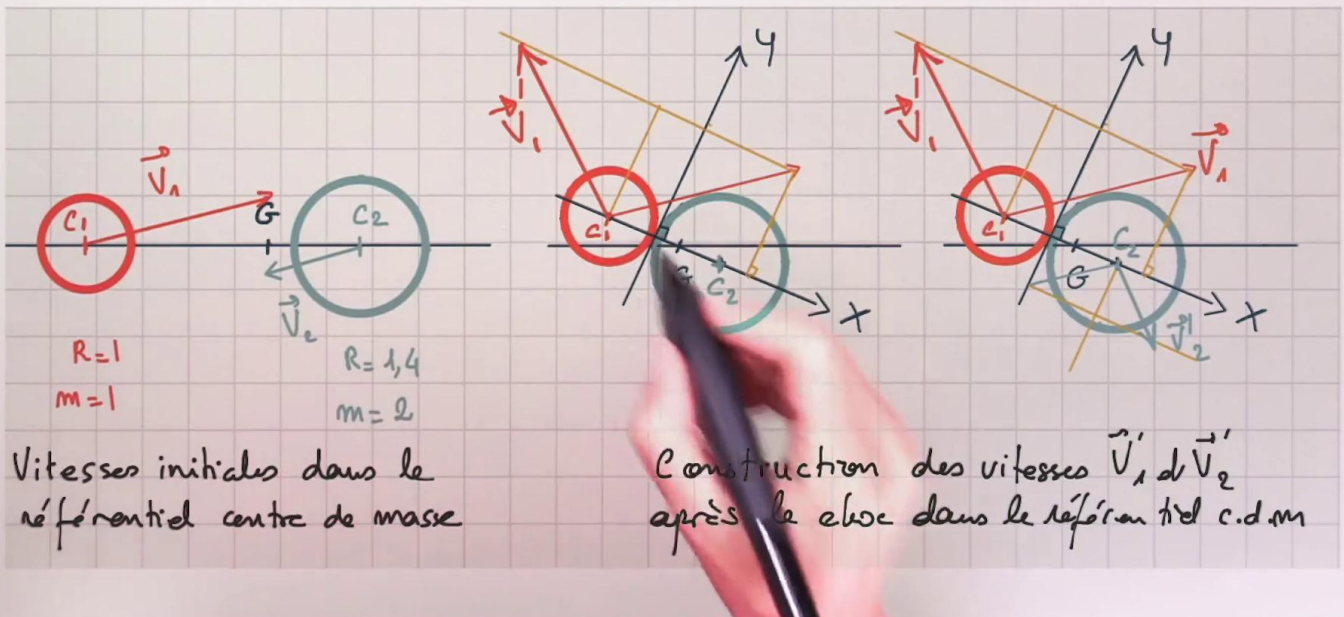 V₁
C₁
G
C₂
V₂
R=1
m=1
R=1,4
m=2
Vitesses initiales dans le
référentiel centre de masse
y
V'₁
C₁
G
C₂
x
y
V'₁
V₁
C₁
C₂
G
V'₂
x
Construction des vitesses V'₁ et V'₂
après le choc dans le référentiel c.d.m